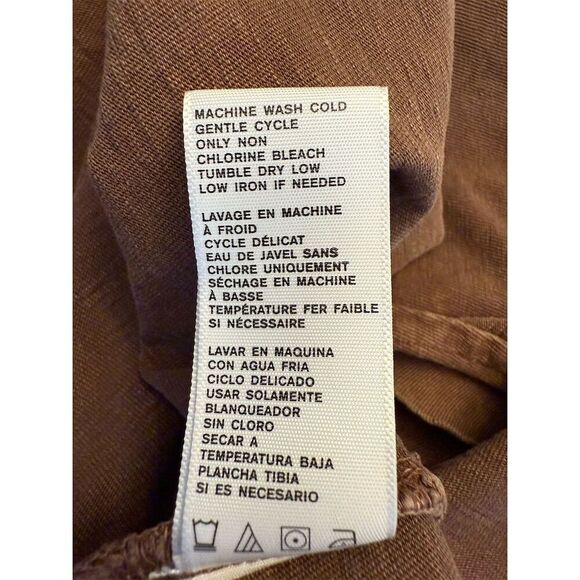 MACHINE WASH COLD
GENTLE CYCLE
ONLY NON
CHLORINE BLEACH
TUMBLE DRY LOW
LOW IRON IF NEEDED
LAVAGE EN MACHINE
À FROID
CYCLE DÉLICAT
EAU DE JAVEL SANS
CHLORE UNIQUEMENT
SÉCHAGE EN MACHINE
À BASSE
TEMPÉRATURE FER FAIBLE
SI NÉCESSAIRE
LAVAR EN MAQUINA
CON AGUA FRIA
CICLO DELICADO
USAR SOLAMENTE
BLANQUEADOR
SIN CLORO
SECAR A
TEMPERATURA BAJA
PLANCHA TIBIA
SI ES NECESARIO